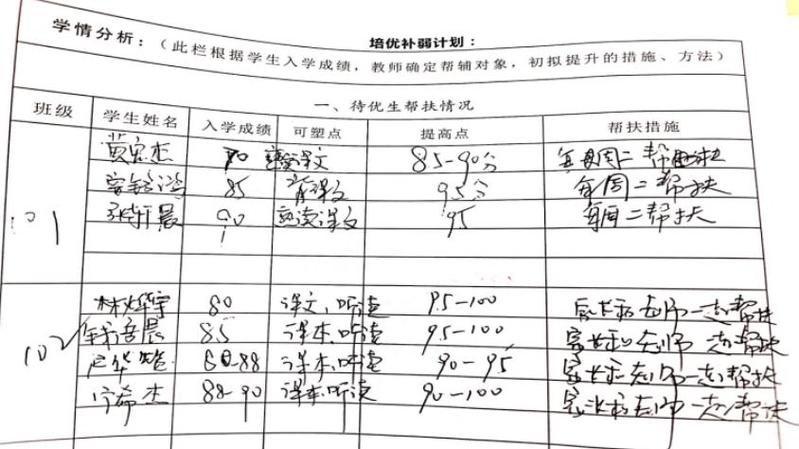 培优补弱计划：
学情分析：（此栏根据学生入学成绩，教师确定帮辅对象，初拟提升的措施、方法）
一、待优生帮扶情况
班级 学生姓名 入学成绩 可塑点 提高点 帮扶措施
101
黄宏杰 70 课文 85-90分 每周二帮扶
85 背课文 95分 每周二帮扶
晨 90 熟读课文 95 每周二帮扶
102
林烨宇 80 课文、听读 95-100 家长和老师一起帮扶
晨 85 课本、听读 95-100 家长和老师一起帮扶
华 60-88 课本、听读 90-95 家长和老师一起帮扶
希杰 88-90 课本、听读 90-100 家长和老师一起帮扶